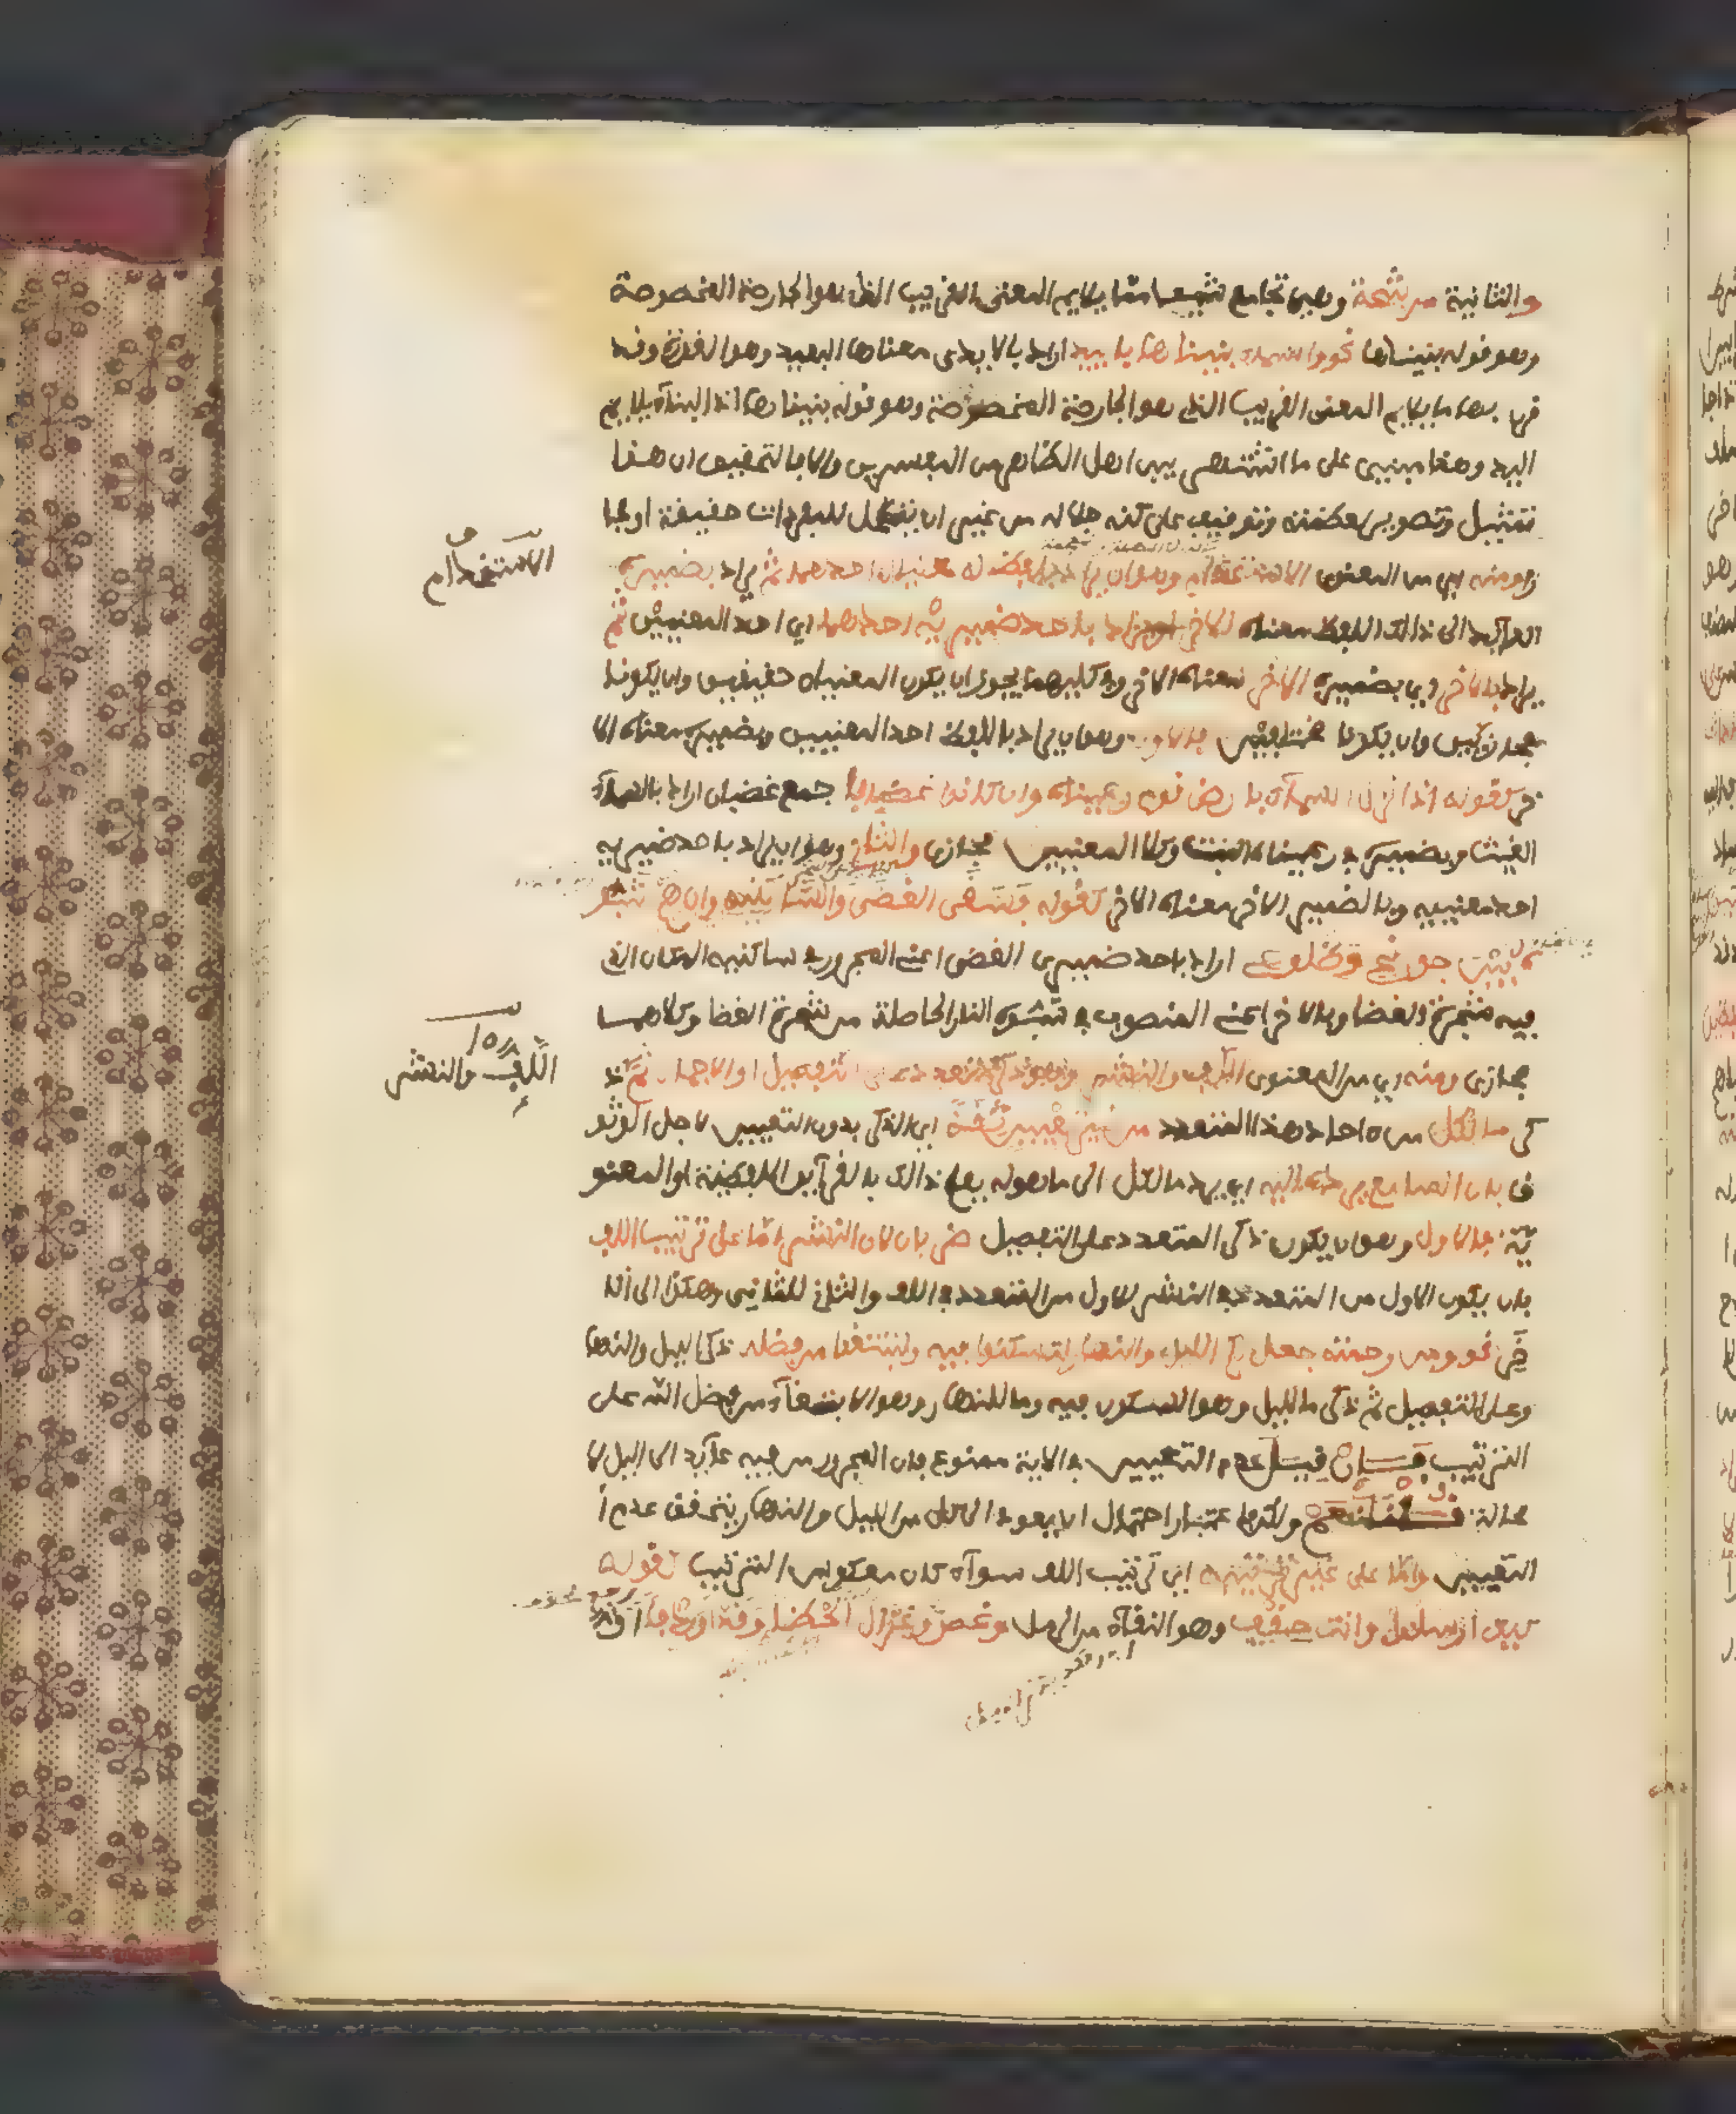 والثانية مرشحة وهي تجامع شيئا مما يلايم المعنى القريب الذي هو الجارحة المخصوصة
وهو قوله بنيناها نحو والسماء بنيناها بايييد اراد بالايدى معناها البعيد وهو القدرة وقد
قرن بها ما يلايم المعنى القريب الذي هو الجارحة المخصوصة وهو قوله بنيناها اذ البناء يلايم
اليد وهذا مبني على ما اشتهر بين اهل الظاهر من المفسرين والا فالتحقيق ان هذا
تمثيل وتصوير لعظمته وتوقيف على كنه جلاله من غير ان يتمحل للمفردات حقيقة او مجا
ز ومنه اي من المعنوى الاستخدام وهو ان يراد بلفظ له معنيان احدهما ثم يراد بضميره
العآيد الى ذالك اللفظ معناه الاخر او يراد باحد ضميريه احدهما اي احد المعنيين ثم
يراد بالاخر اي بضميره الاخر معناه الاخر وفي كليهما يجوز ان يكون المعنيان حقيقيين وان يكونا
مجازيين وان يكونا مختلفين فالاول وهو ان يراد باللفظ احد المعنيين وبضميره معناه الا
خر كقوله اذا نزل السمآء بارض قوم رعيناه وان كانوا غضابا جمع غضبان اراد بالسمآء
الغيث وبضميره في رعيناه النبت وكلا المعنيين مجازي والثاني وهو ان يراد باحد ضميريه
احد معنييه وبالضمير الاخر معناه الاخر كقوله فسقى الغضى والساكنيه وان هم شبو
ه بين جوانحي وضلوعي اراد باحد ضميري الغضى اعني المجرور في ساكنيه المكان الذي
فيه شجرة الغضا وبالاخر اعني المنصوب في شبوه النار الحاصلة من شجرة الغضا وكلاهما
مجازي ومنه اي من المعنوى اللف والنشر وهو ذكر متعدد على التفصيل او الاجمال ثم ذ
كر ما لكل من ءاحاد هذا المتعدد من غير تعيين ثقة اي الذكر بدون التعيين لاجل الوثو
ق بان السامع يرده اليه اي يرد ما لكل الى ما هو له بعلم ذالك بالقرآين اللفظية او المعنو
ية فالاول وهو ان يكون ذكر المتعدد على التفصيل ضربان لان النشر اما على ترتيب اللف
بان يكون الاول من المتعدد في النشر للاول من المتعدد في اللف والثاني للثاني وهكذا الى الا
خر نحو ومن رحمته جعل لكم الليل والنهار لتسكنوا فيه ولتبتغوا من فضله ذكر الليل والنها
ر على التفصيل ثم ذكر ما لليل وهو السكون فيه وما للنهار وهو الابتغآء من فضل الله على
الترتيب فان قيل عدم التعيين في الاية ممنوع فان المجرور من فيه عآيد الى اليل لا
محالة قلنا نعم ولكن باعتبار احتمال ان يعود الى كل من الليل والنهار يتحقق عدم ا
لتعيين واما على غير ترتيبه اي ترتيب اللف سوآء كان معكوس الترتيب كقوله
كيف اسلوا وانت حقف وهو النقآء من الرمل وغصن وغزال لحظا وقدا وردفا
الاستخدام
اللف والنشر